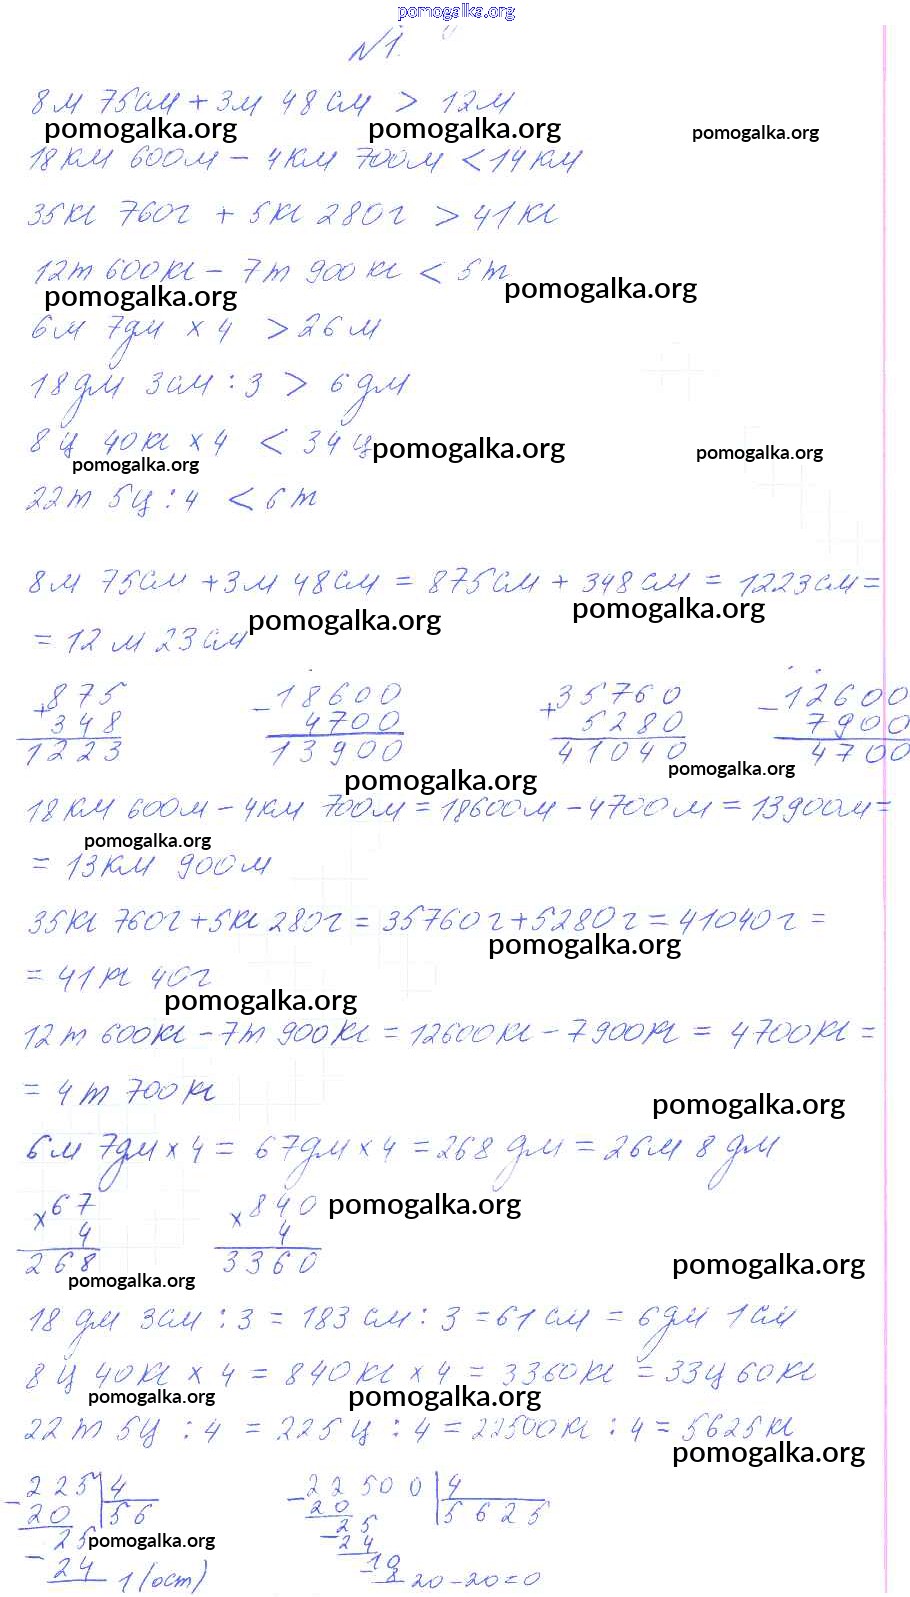 pomogalka.org
N1.
8м 75см + 3м 48см > 12м
pomogalka.org pomogalka.org pomogalka.org
18км 600м - 4км 700м < 14км
35кг 760г + 5кг 280г > 41кг
12т 600кг - 7т 900кг < 5т
pomogalka.org pomogalka.org
6м 7дм × 4 > 26м
18дм 3см : 3 > 6дм
8ц 40кг × 4 < 34ц
pomogalka.org pomogalka.org
pomogalka.org
22т 5ц : 4 < 6т
8м 75см + 3м 48см = 875см + 348см = 1223см =
pomogalka.org pomogalka.org
= 12м 23см
+875 -18600 +35760 -12600
348 4700 5280 7900
1223 13900 41040 4700
pomogalka.org pomogalka.org
18км 600м - 4км 700м = 18600м - 4700м = 13900м =
pomogalka.org
= 13км 900м
35кг 760г + 5кг 280г = 35760г + 5280г = 41040г =
pomogalka.org
= 41кг 40г
pomogalka.org
12т 600кг - 7т 900кг = 12600кг - 7900кг = 4700кг =
= 4т 700кг
pomogalka.org
6м 7дм × 4 = 67дм × 4 = 268дм = 26м 8дм
×67 ×840 pomogalka.org
4 4
268 3360
pomogalka.org pomogalka.org
18дм 3см : 3 = 183см : 3 = 61см = 6дм 1см
8ц 40кг × 4 = 840кг × 4 = 3360кг = 33ц 60кг
pomogalka.org pomogalka.org
22т 5ц : 4 = 225ц : 4 = 22500кг : 4 = 5625кг
pomogalka.org
-225 4 -22500 4
20 56 20 5625
25 25
pomogalka.org
-24 1(ост) -24
-10
8 20-20=0